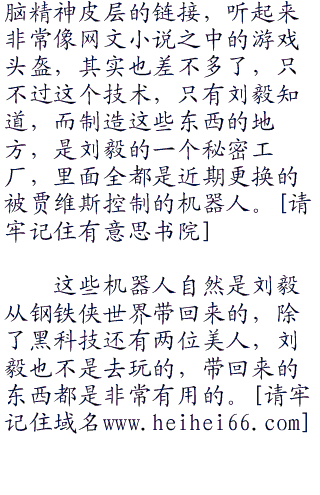 脑精神皮层的链接，听起来
非常像网文小说之中的游戏
头盔，其实也差不多了，只
不过这个技术，只有刘毅知
道，而制造这些东西的地
方，是刘毅的一个秘密工
厂，里面全都是近期更换的
被贾维斯控制的机器人。[请
牢记住有意思书院]
这些机器人自然是刘毅
从钢铁侠世界带回来的，除
了黑科技还有两位美人，刘
毅也不是去玩的，带回来的
东西都是非常有用的。[请牢
记住域名www.heihei66.com]